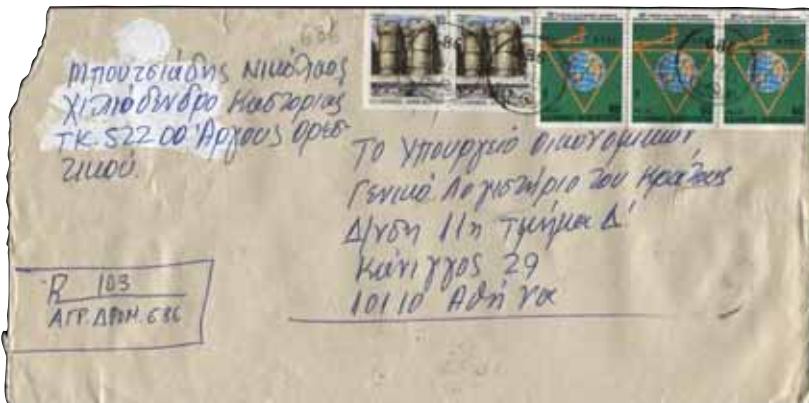 686
Μπουτσιάδης Νικόλαος
Χιλιόδενδρο Καστοριάς
ΤΚ. 522 00 Άργους Ορεσ-
τικού.
Το Υπουργείο Οικονομικών,
Γενικό Λογιστήριο του Κράτους
Δ/νση 11η Τμήμα Δ'
Κάνιγγος 29
10110 Αθήνα
R 103
ΑΓΡ. ΔΡΟΜ. 686
686
686